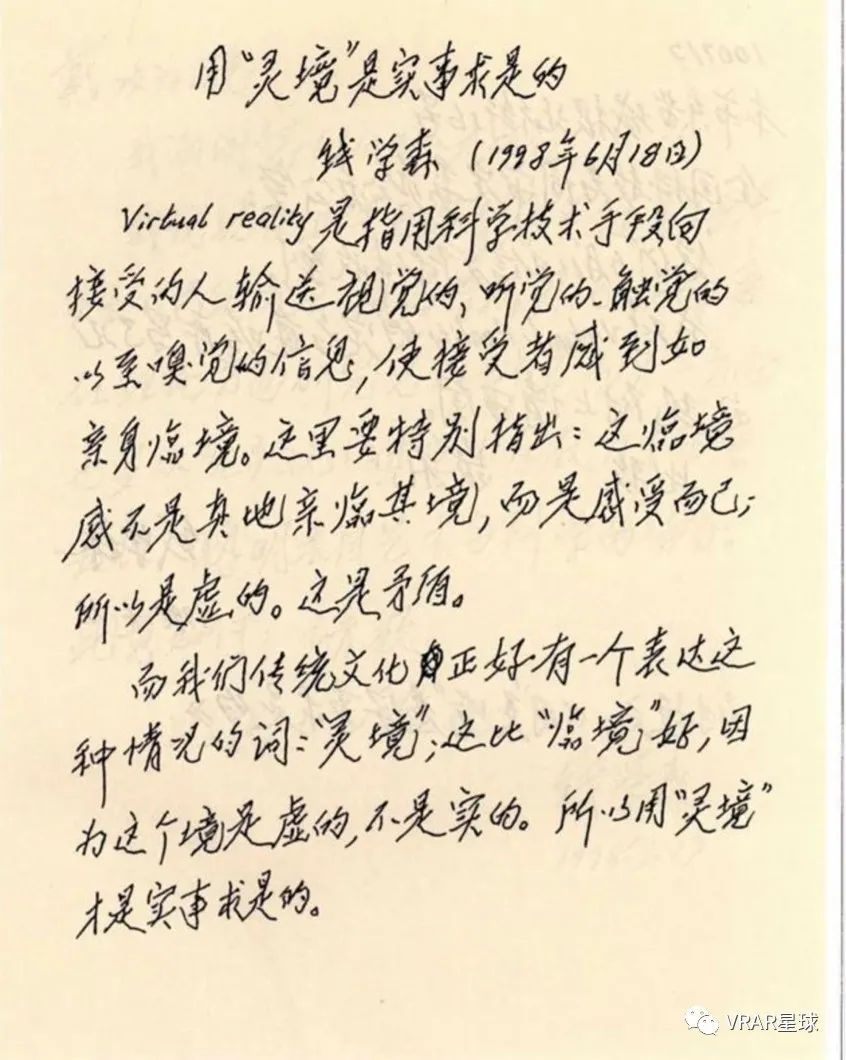 用“灵境”是实事求是的
钱学森（1998年6月18日）
Virtual reality是指用科学技术手段向
接受的人输送视觉的、听觉的、触觉的
以至嗅觉的信息，使接受者感到如
亲身临境。这里要特别指出：这临境
感不是真地亲临其境，而是感受而已；
所以是虚的。这是矛盾。
而我们传统文化正好有一个表达这
种情况的词：“灵境”；这比“临境”好，因
为这个境是虚的，不是实的。所以用“灵境”
才是实事求是的。
VRAR星球